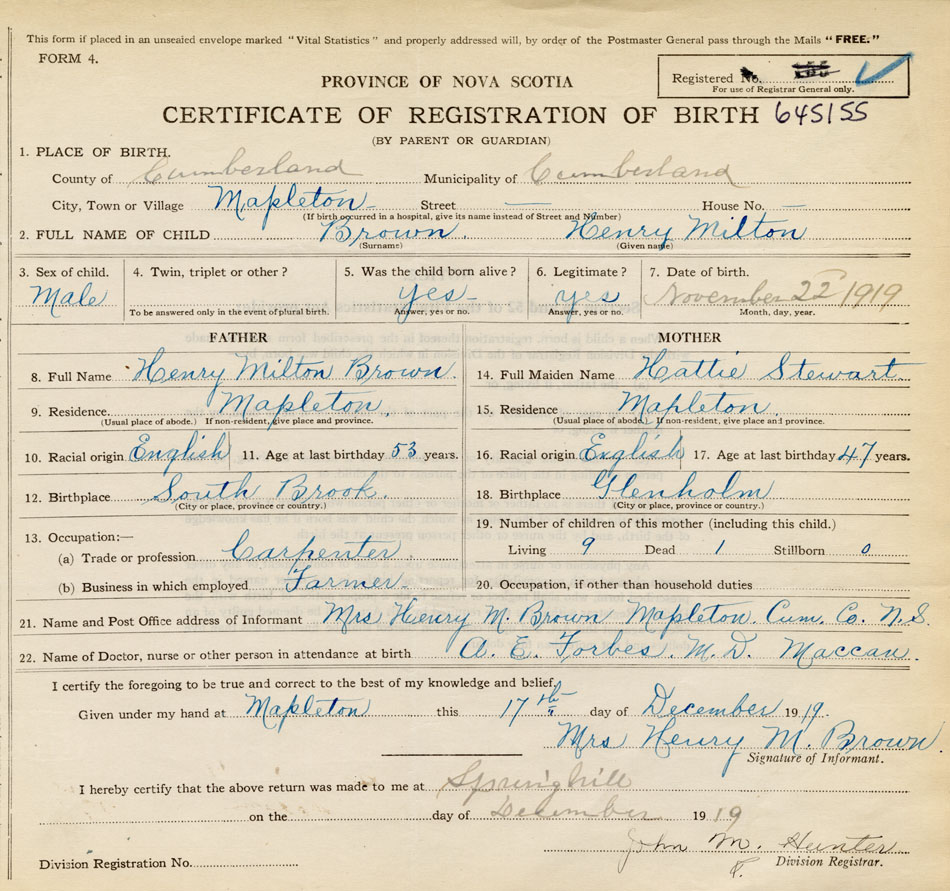 This form if placed in an unsealed envelope marked "Vital Statistics" and properly addressed will, by order of the Postmaster General pass through the Mails "FREE."
FORM 4.
Registered No.
For use of Registrar General only.
PROVINCE OF NOVA SCOTIA
CERTIFICATE OF REGISTRATION OF BIRTH 645155
(BY PARENT OR GUARDIAN)
1. PLACE OF BIRTH.
County of Cumberland Municipality of Cumberland
City, Town or Village Mapleton Street — House No. —
(If birth occurred in a hospital, give its name instead of Street and Number)
2. FULL NAME OF CHILD Brown. Henry Milton
(Surname) (Given name)
3. Sex of child. 4. Twin, triplet or other? 5. Was the child born alive? 6. Legitimate? 7. Date of birth.
Male yes yes November 22 1919
To be answered only in the event of plural birth. Answer, yes or no. Answer, yes or no. Month, day, year.
FATHER MOTHER
8. Full Name Henry Milton Brown. 14. Full Maiden Name Hattie Stewart
9. Residence. Mapleton. 15. Residence Mapleton.
(Usual place of abode.) If non-resident, give place and province. (Usual place of abode.) If non-resident, give place and province.
10. Racial origin English 11. Age at last birthday 53 years. 16. Racial origin English 17. Age at last birthday 47 years.
12. Birthplace South Brook. 18. Birthplace Glenholm
(City or place, province or country.) (City or place, province or country.)
13. Occupation:— 19. Number of children of this mother (including this child.)
(a) Trade or profession Carpenter. Living 9 Dead 1 Stillborn 0
(b) Business in which employed Farmer 20. Occupation, if other than household duties
21. Name and Post Office address of Informant Mrs Henry M. Brown Mapleton Cum. Co. N.S.
22. Name of Doctor, nurse or other person in attendance at birth A. E. Forbes. M.D. Maccan.
I certify the foregoing to be true and correct to the best of my knowledge and belief.
Given under my hand at Mapleton this 17th day of December 1919.
Mrs Henry M. Brown.
Signature of Informant.
I hereby certify that the above return was made to me at Springhill
on the day of December 1919
John M. Hunter
Division Registration No. Division Registrar.